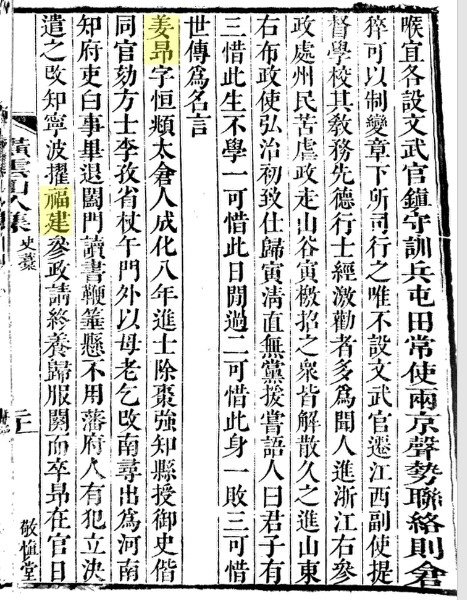 喉宜各設文武官鎮守訓兵屯田常使兩京聲勢聯絡則倉
猝可以制變章下所司行之唯不設文武官遷江西副使提
督學校其敎務先德行士經激勸者多爲聞人進浙江右參
政處州民苦虐政走山谷寅檄招之衆皆解散久之進山東
右布政使弘治初致仕歸寅淸直無黨援嘗語人曰君子有
三惜此生不學一可惜此日閒過二可惜此身一敗三可惜
世傳爲名言
姜昂字恒頫太倉人成化八年進士除棗強知縣授御史偕
同官劾方士李孜省杖午門外以母老乞改南尋出爲河南
知府吏白事畢退闔門讀書鞭箠懸不用藩府人有犯立決
遣之改知寧波擢福建參政請終養歸服闋而卒昂在官日
史藁
敬愼堂